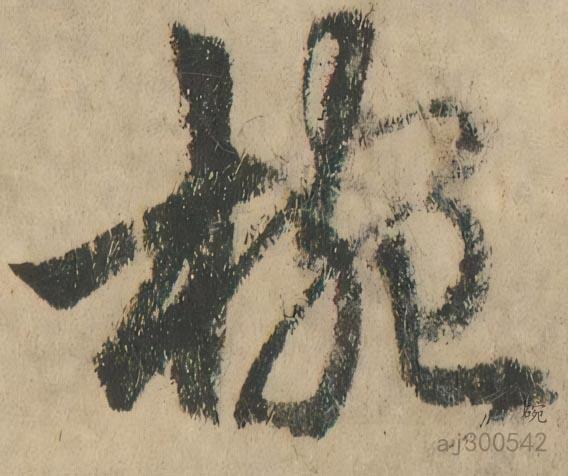 椀
碗
aj300542